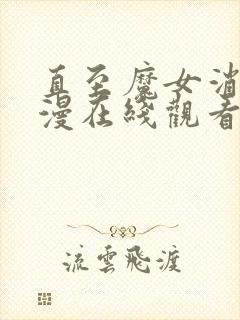 直至魔女消
漫在綫觀看
流雲飛渡